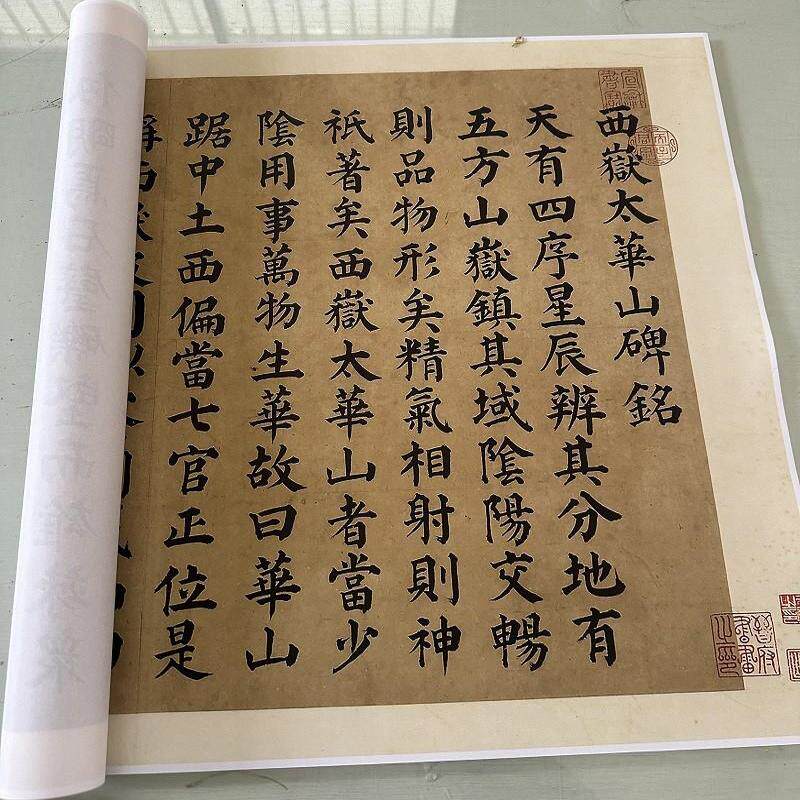 西嶽太華山碑銘
天有四序星辰辨其分地有
五方山嶽鎮其域陰陽交暢
則品物形矣精氣相射則神
祇著矣西嶽太華山者當少
陰用事萬物生華故曰華山
踞中土西偏當七官正位是
晉府書畫之印